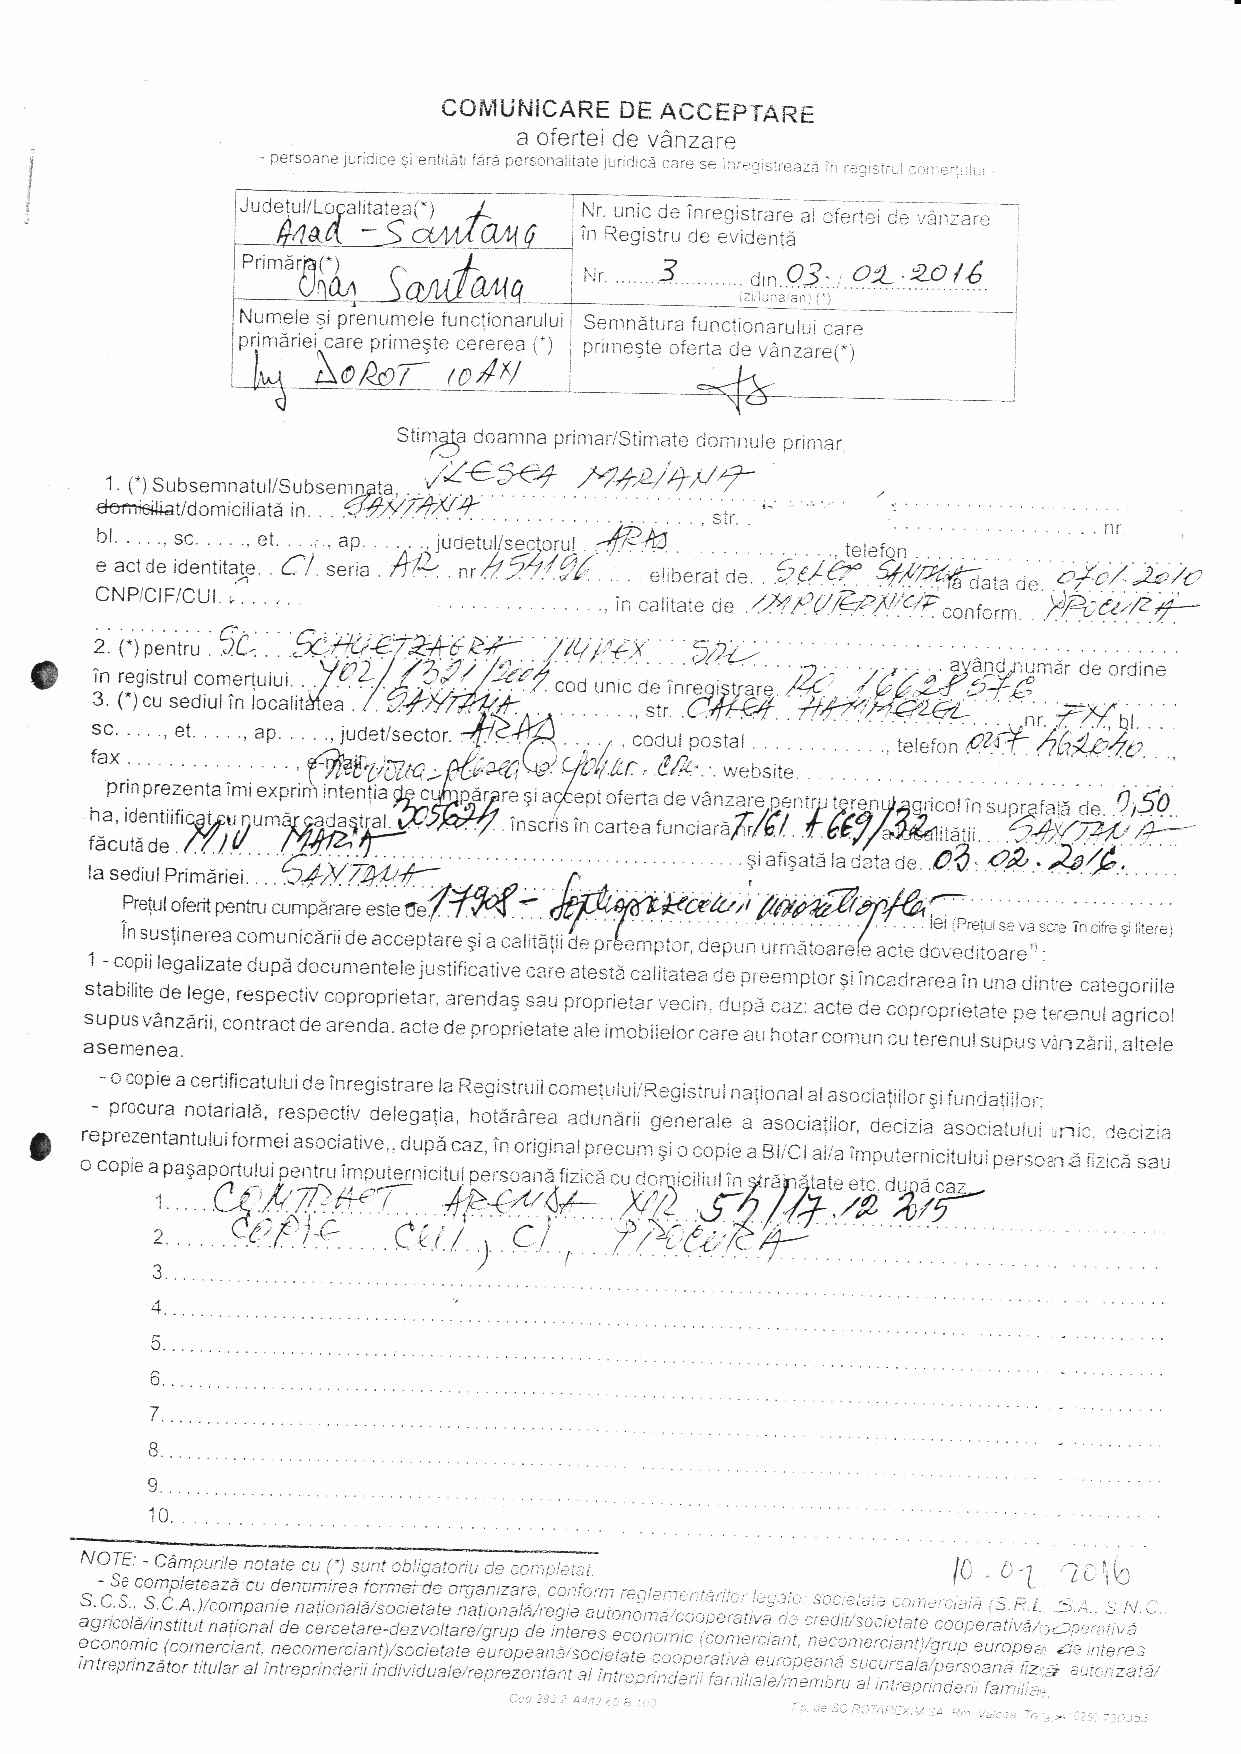 COMUNICARE DE ACCEPTARE
a ofertei de vânzare
- persoane juridice şi entităţi fără personalitate juridică care se înregistrează în registrul comerţului -
Judeţul/Localitatea(*)
Arad - Santana
Nr. unic de înregistrare al ofertei de vânzare
în Registru de evidenţă
Primăria(*)
Oraş Santana
Nr. 3 din 03. 02. 2016
(zi/luna/an) (*)
Numele şi prenumele funcţionarului
primăriei care primeşte cererea (*)
Ing DOROT IOAN
Semnătura funcţionarului care
primeşte oferta de vânzare(*)
Stimata doamna primar/Stimate domnule primar,
1. (*) Subsemnatul/Subsemnata, MARIANA
domiciliat/domiciliată in. . . SANTANA , str. . nr.
bl. . . . ., sc. . . . ., et. . . . ., ap. . . . . , judetul/sectorul ARAD , telefon
e act de identitate. . CI . seria . AR . nr eliberat de. . SANTANA la data de. 07 01. 2010
CNP/CIF/CUI. , in calitate de . IMPUTERNICIT conform. PROCURA
2. (*) pentru . SC. . . IMPEX SRL având număr de ordine
în registrul comerţului. . cod unic de înregistrare.
3. (*) cu sediul în localitatea . SANTANA , str. . CALEA nr. FN. bl.
sc. . . . ., et. . . . ., ap. . . . ., judet/sector. ARAD , codul postal , telefon
fax , e-mail website.
prin prezenta îmi exprim intenţia de cumpărare şi accept oferta de vânzare pentru terenul agricol în suprafaţă de. 0,50
ha, identificat cu număr cadastral. 305624 . înscris în cartea funciară nr a localităţii. . SANTANA
făcută de . MARIA şi afişată la data de. . 03. 02. 2016.
la sediul Primăriei. . . . SANTANA
Preţul oferit pentru cumpărare este de 17908 - lei (Preţul se va scrie în cifre şi litere)
În susţinerea comunicării de acceptare şi a calităţii de preemptor, depun următoarele acte doveditoare¹⁾ :
1 - copii legalizate după documentele justificative care atestă calitatea de preemptor şi încadrarea în una dintre categoriile
stabilite de lege, respectiv coproprietar, arendaş sau proprietar vecin, după caz: acte de coproprietate pe terenul agricol
supus vânzării, contract de arenda, acte de proprietate ale imobilelor care au hotar comun cu terenul supus vânzării, altele
asemenea.
- o copie a certificatului de înregistrare la Registruil comeţului/Registrul naţional al asociaţiilor şi fundaţiilor;
- procura notarială, respectiv delegaţia, hotărârea adunării generale a asociaţilor, decizia asociatului unic, decizia
reprezentantului formei asociative,, după caz, în original precum şi o copie a BI/CI al/a împuternicitului persoană fizică sau
o copie a paşaportului pentru împuternicitul persoană fizică cu domiciliul în străinătate etc, după caz
1. CONTRACT ARENDA NR 54/17.12 2015
2. COPIE CUI, CI, PROCURA
3.
4.
5.
6.
7.
8.
9.
10.
NOTE: - Câmpurile notate cu (*) sunt obligatoriu de completat.
10 . 02 2016
- Se completează cu denumirea formei de organizare, conform reglementărilor legale: societate comercială (S.R.L., S.A., S.N.C.,
S.C.S., S.C.A.)/companie naţională/societate naţională/regie autonomă/cooperativa de credit/societate cooperativă/cooperativă
agricolă/institut naţional de cercetare-dezvoltare/grup de interes economic (comerciant, necomerciant)/grup european de interes
economic (comerciant, necomerciant)/societate europeană/societate cooperativă europeană sucursala/persoană fizică autorizată/
intreprinzător titular al întreprinderii individuale/reprezentant al întreprinderii familiale/membru al intreprinderii familiale.